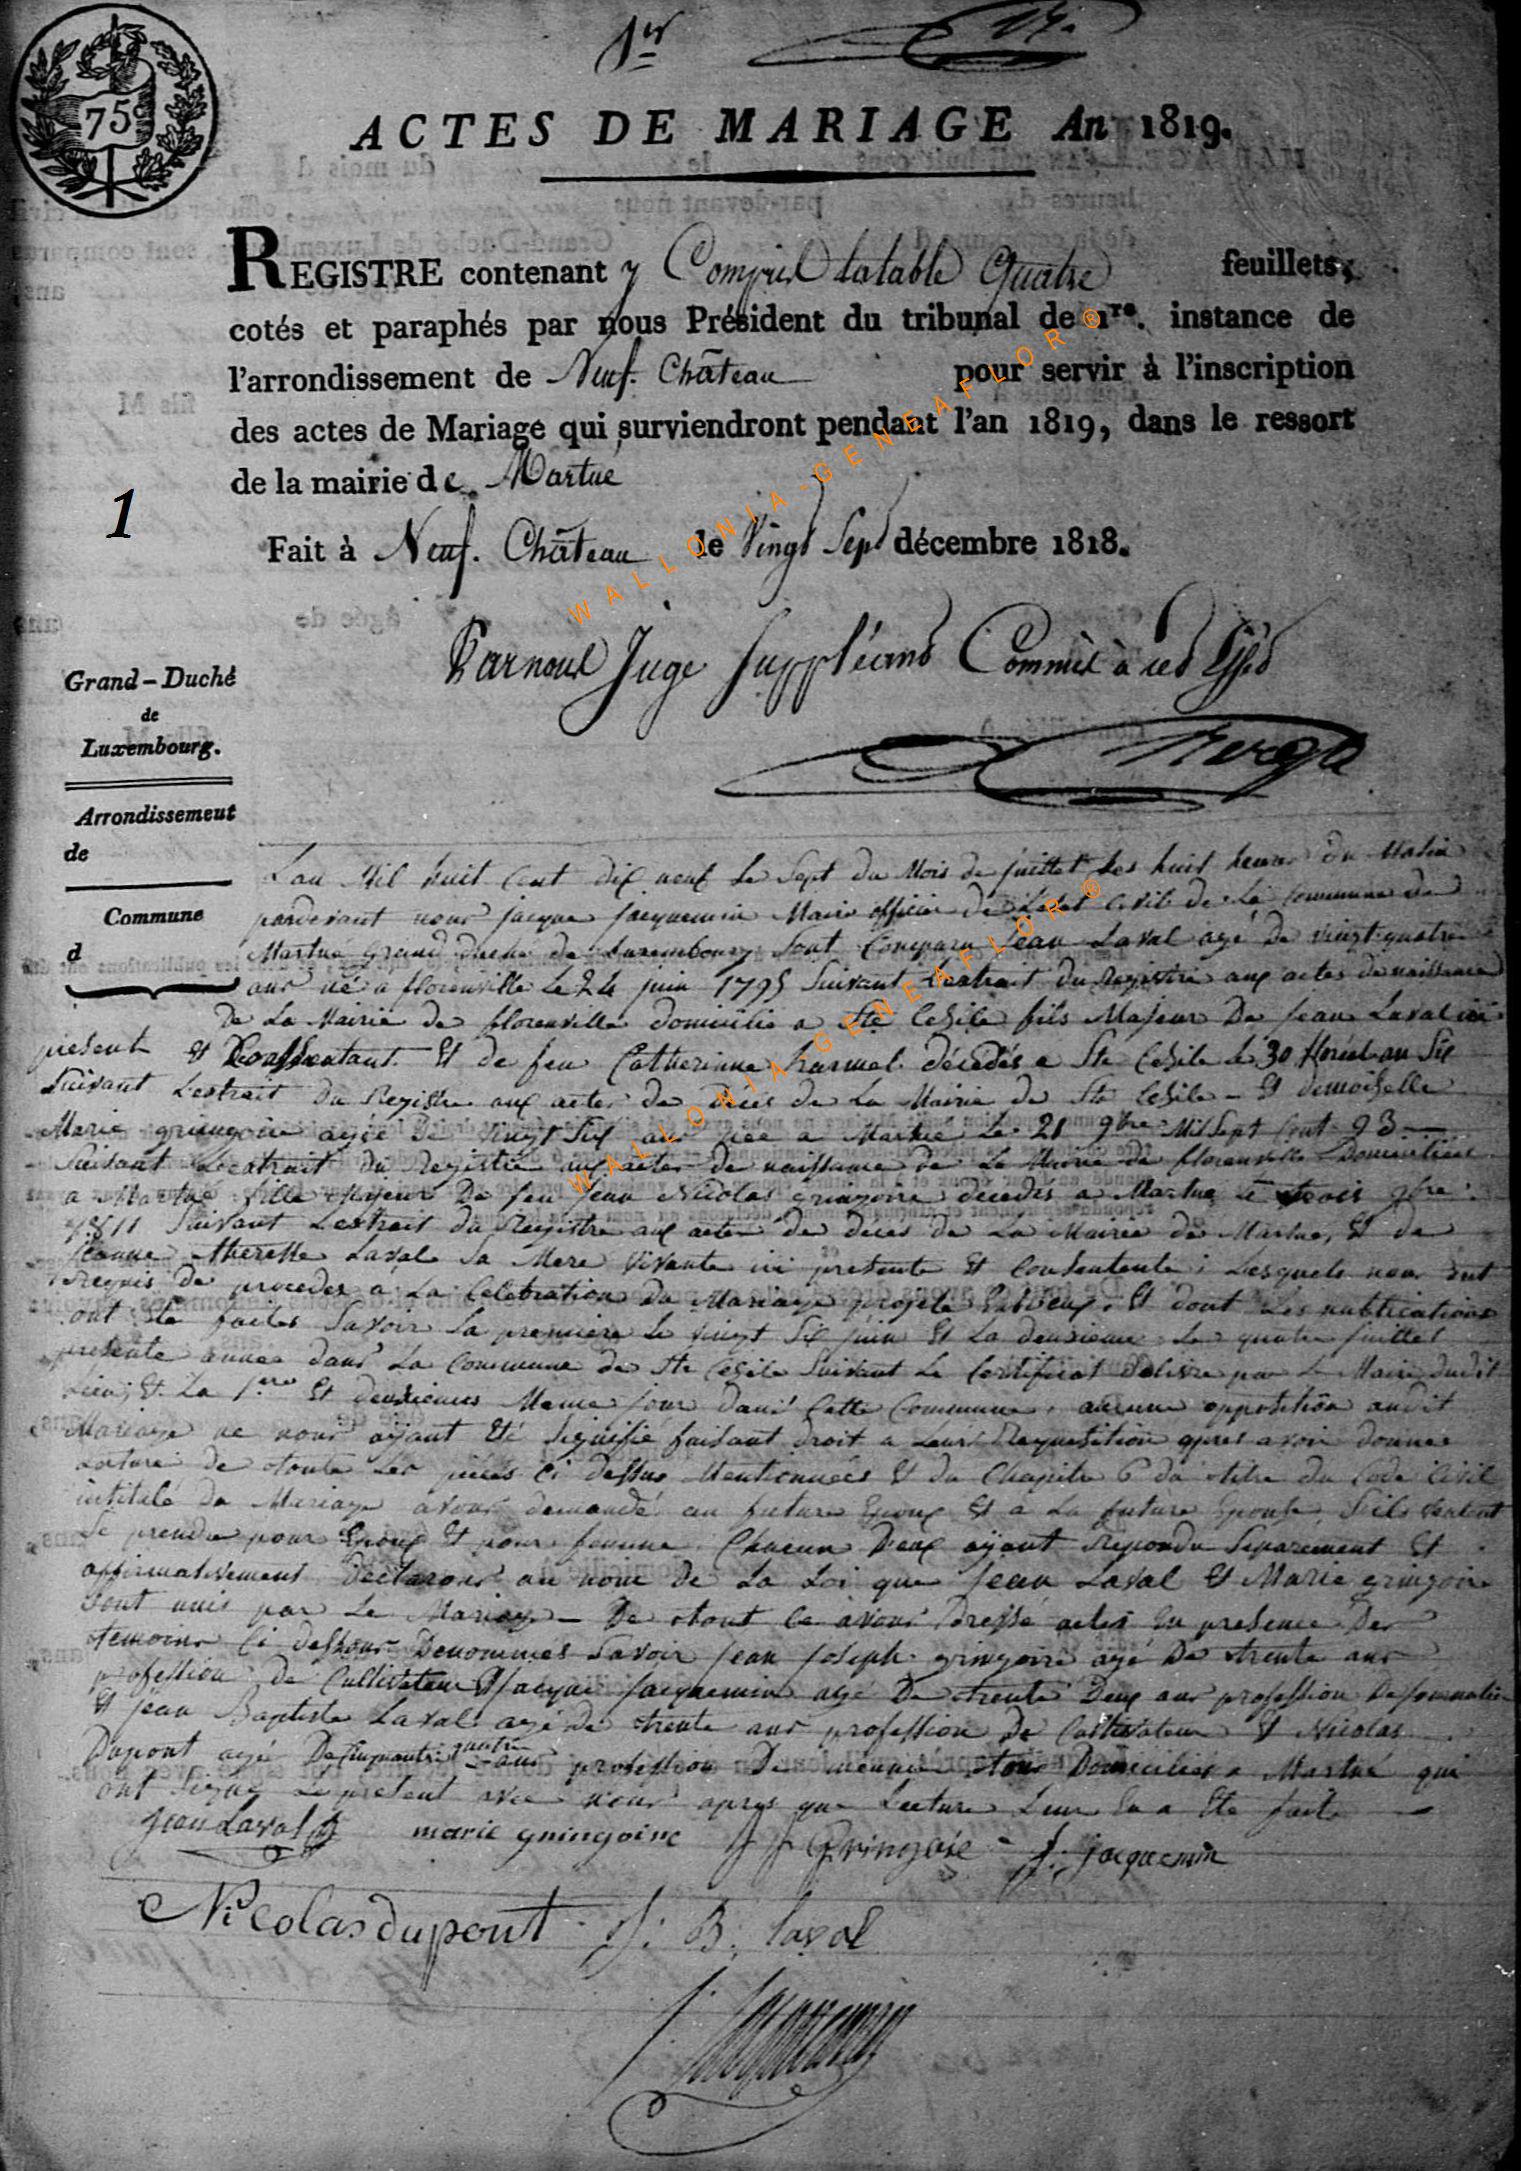 1er
75c
ACTES DE MARIAGE An 1819.
REGISTRE contenant y Compris la table Quatre feuillets,
cotés et paraphés par nous Président du tribunal de 1re. instance de
l'arrondissement de Neuf. Château pour servir à l'inscription
des actes de Mariage qui surviendront pendant l'an 1819, dans le ressort
de la mairie de Martué
1
Fait à Neuf. Château le Vingt Sept décembre 1818.
Juge Suppléant Commis à cet
Grand-Duché
de
Luxembourg.
Arrondissement
de
Commune
d
Lan Mil huit Cent dix neuf Le Sept du Mois de juillet Les huit heures du Matin
pardevant nous jacque jacquemin Maire officier de Letat Civile de La Commune de
Martué Grand duché de Luxembourg Sont Comparu Jean Laval agé de vingt quatre
ans né a florenville Le 24 juin 1795 Suivant Lextrait du Registre aux actes de naissance
De La Mairie de florenville domicilié a Ste Cesile fils Majeur De Jean Laval ici
present Et Consentant Et de feu Catherinne décédés a Ste Cesile Le 30 floréal an Six
Suivant Lextrait du Registre aux actes de deces de La Mairie de Ste Cesile - Et demoiselle
Marie gringoire agée de vingt Six ans née a Martue Le 21 9bre Mil Sept Cent 93
Suivant Lextrait du Registre aux actes de naissance de La Mairie de florenville Domiciliée
a Martué fille Majeur De feu Jean Nicolas gringoire decedés a Martue Le trois 9bre
1811 Suivant Lextrait du Registre aux actes de déces de La Mairie de Martue, Et de
Jeanne theresse Laval Sa Mere vivante ici presente Et Consentente; Lesquels nous ont
Requis de proceder a La Celebration du Mariage projeté Et dont Les publications
ont été faites Savoir La premiere Le vingt Six juin Et La deuxieme Le quatre juillet
presente année dans La Commune de Ste Cesile Suivant Le Certificat Delivré par Le Maire dudit
Lieu; Et La 1ere Et deuxiemes Meme jour dans Cette Commune, aucune opposition audit
Mariage ne nous ayant Eté Signifié faisant droit a Leur Requesition apres avoir donnée
Lecture de toute Les pieces Ci dessus Mentionnées Et du Chapitre 6 du titre du Code Civil
intitulé du Mariage avons demandé au future Epoux Et a La future Epouse, Sils veulent
Se prendre pour Epoux Et pour femme, Chacun Deux ayant Repondu Separement Et
affirmativement Déclarons au nom de La Loi que Jean Laval Et Marie gringoire
Sont unis par Le Mariage - De tout Ce avons Dressé acte En presence Des
temoins Ci dessous Denommés Savoir Jean Joseph gringoire agé De trente ans
profession de Cultivateur Et Jacque Jacquemin agé De trente Deux ans profession De
Et Jean Baptiste Laval agé de trente ans profession De Cultivateur Et Nicolas
Dupont agé De Cinquante quatre ans profession De meme tous Domiciliés a Martué qui
ont Signé Le present avec nous apres que Lecture Leur En a Eté faite
Jean Laval marie gringoire J J Gringoire J: jacquemin
Nicolas dupont J: B: laval
J: Jacquemin
WALLONIA-GENEAFLOR®
WALLONIA-GENEAFLOR®